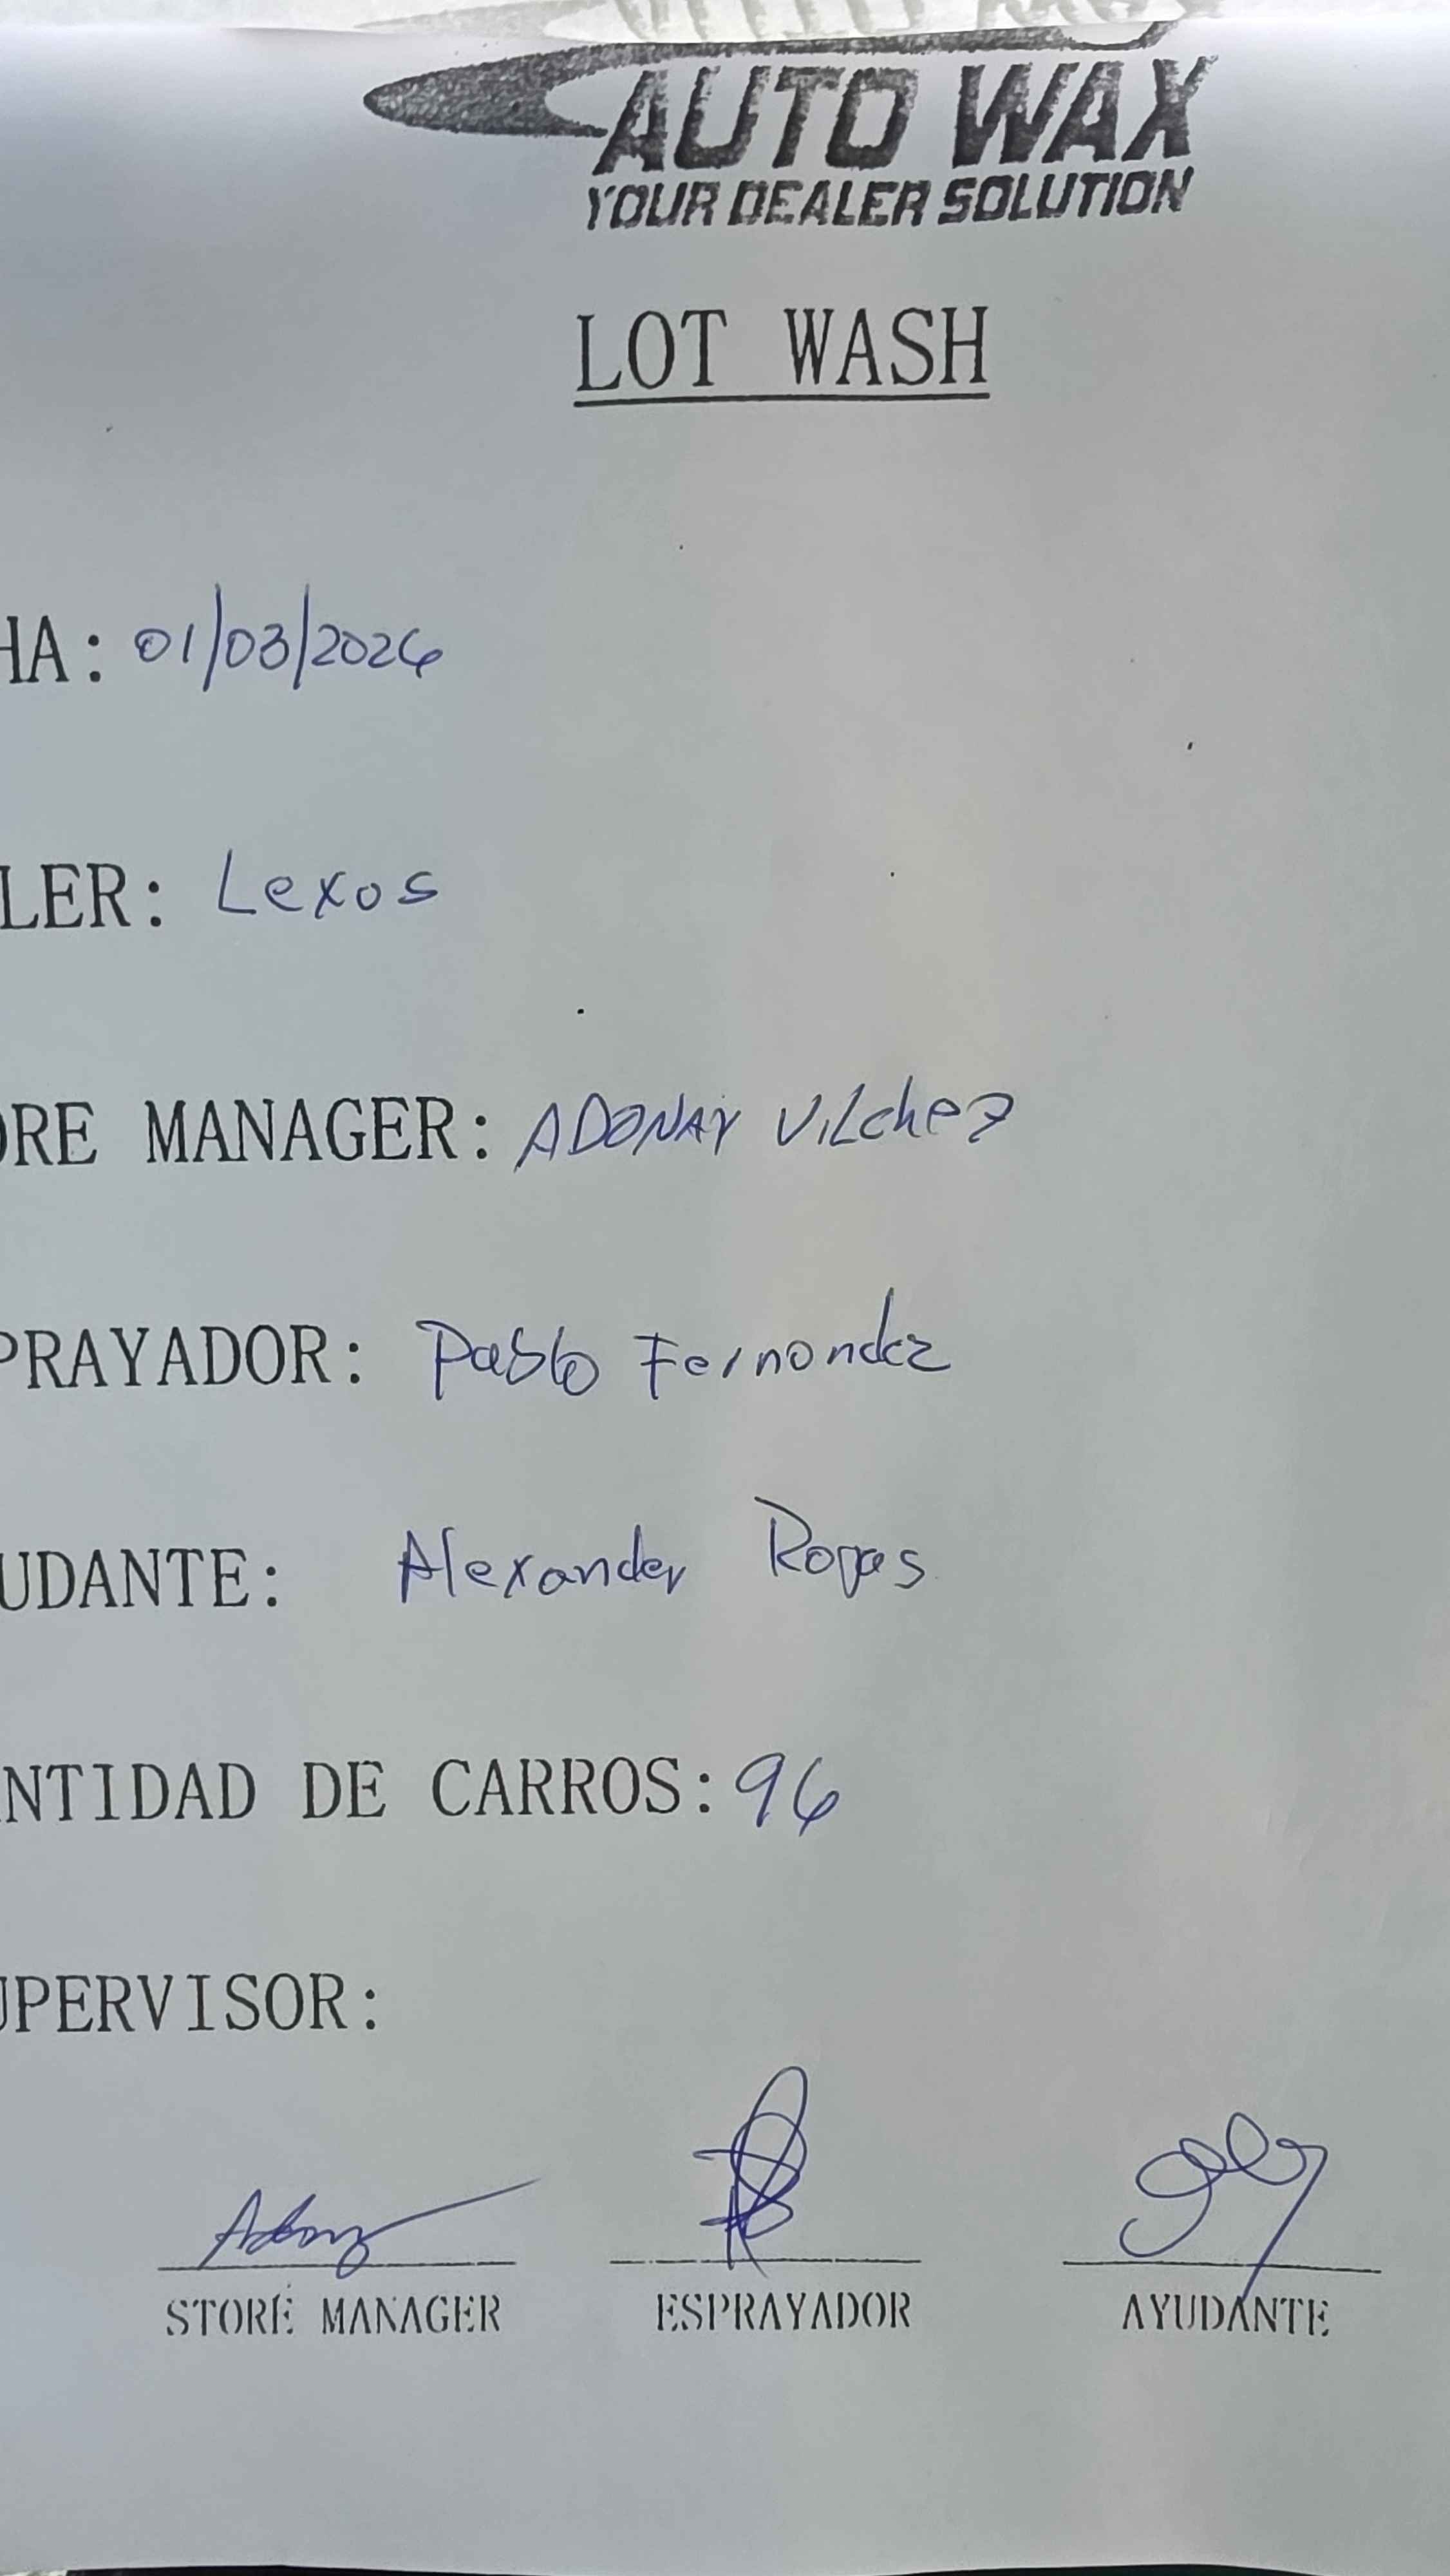 AUTO WAX
YOUR DEALER SOLUTION
LOT WASH
HA: 01/03/2026
LER: Lexos
ORE MANAGER: ADONAY VILchez
PRAYADOR: Pablo Fernondez
UDANTE: Alexander Rojas
NTIDAD DE CARROS: 96
UPERVISOR:
STORE MANAGER ESPRAYADOR AYUDANTE